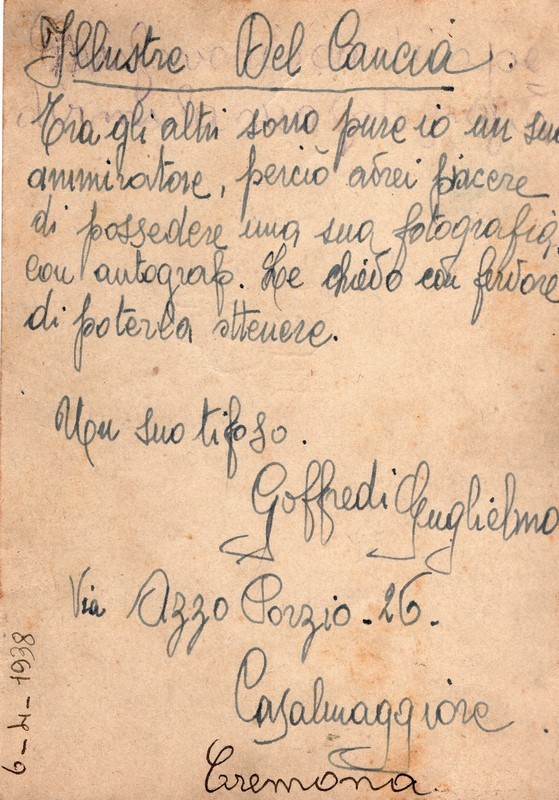 Illustre Del Cancia.
Tra gli altri sono pure io un suo
ammiratore, perciò avrei piacere
di possedere una sua fotografia,
con autografo. Le chiedo con fervore
di poterla ottenere.
Un suo tifoso.
Goffredi Guglielmo
Via Azzo Porzio. 26.
Casalmaggiore.
Cremona.
6-4-1938